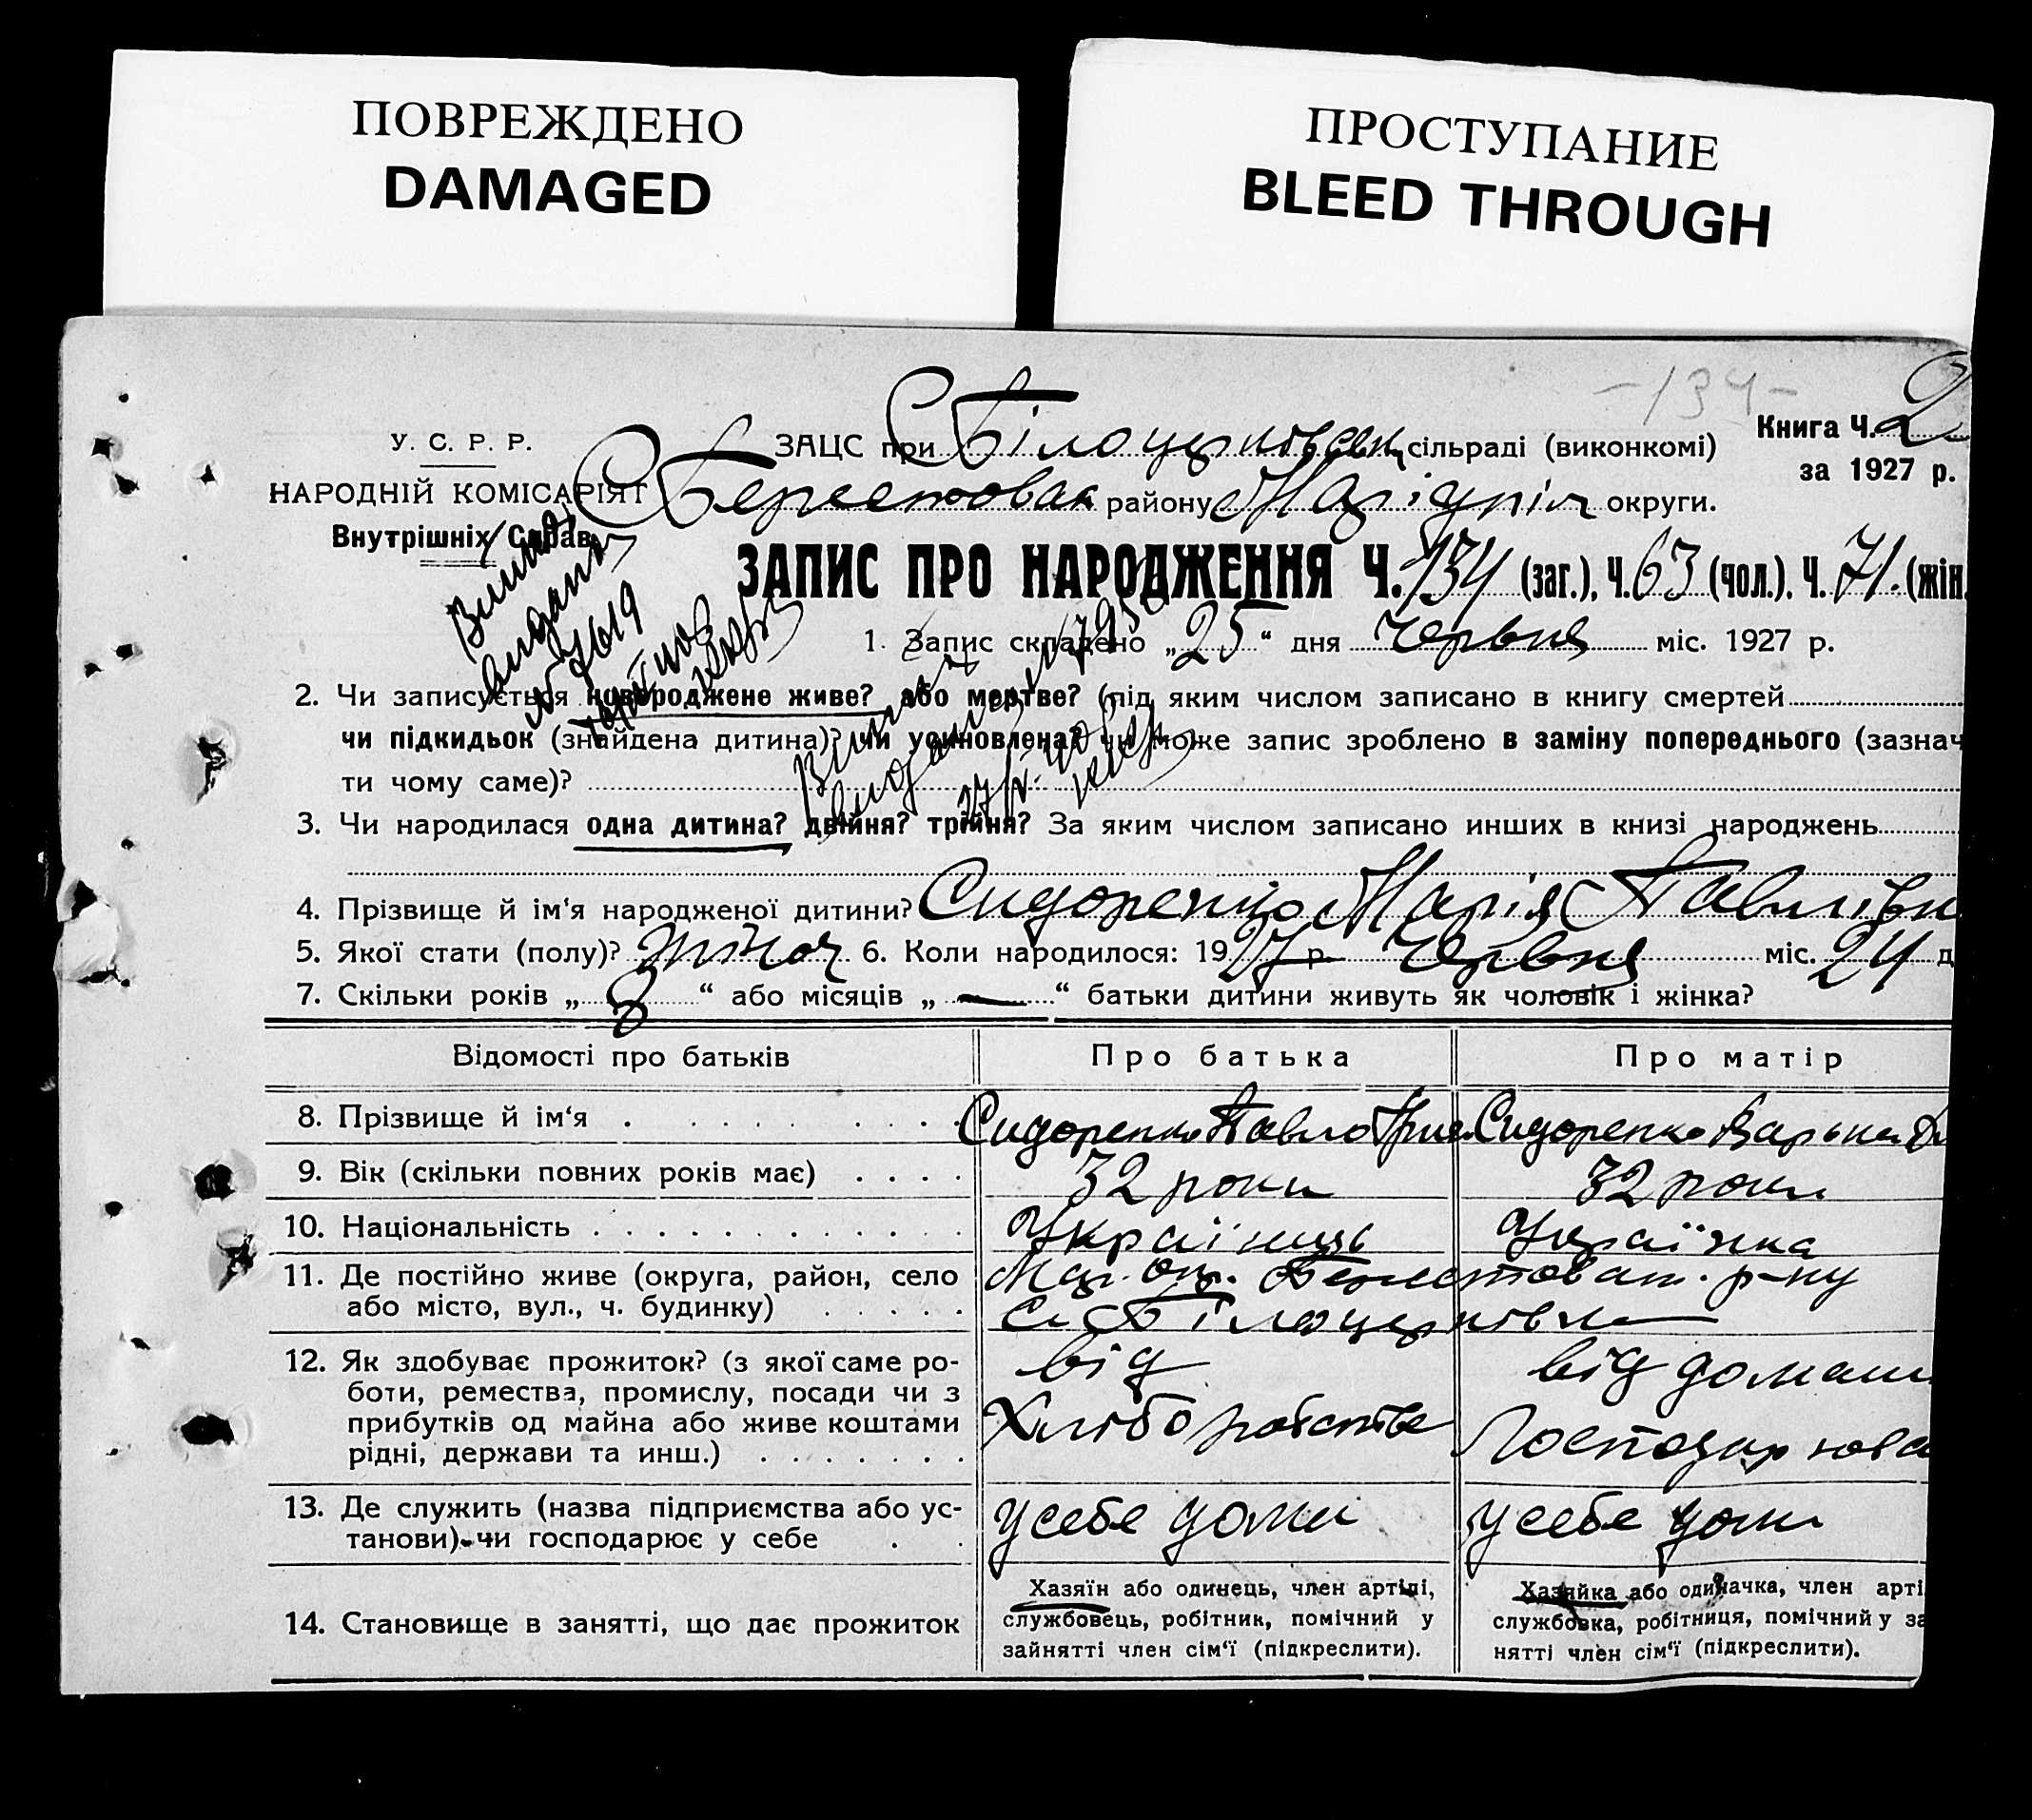 ПОВРЕЖДЕНО
DAMAGED
ПРОСТУПАНИЕ
BLEED THROUGH
-134-
У. С. Р. Р.
НАРОДНІЙ КОМІСАРІЯТ
Внутрішніх Справ
Книга Ч. 2
за 1927 р.
ЗАЦС при С. Білоцерківськ. сільраді (виконкомі)
Берестовак району Маріупіл округи.
ЗАПИС ПРО НАРОДЖЕННЯ Ч. 134 (заг.), Ч. 63 (чол.). Ч. 71. (жін.
1. Запис складено „25“ дня Червня міс. 1927 р.
2. Чи записується новороджене живе? або мертве? (під яким числом записано в книгу смертей
чи підкидьок (знайдена дитина)? чи усиновлена? чи може запис зроблено в заміну попереднього (зазнач
ти чому саме)?
3. Чи народилася одна дитина? двійня? трійня? За яким числом записано инших в книзі народжень
4. Прізвище й ім'я народженої дитини? Сидоренко Марія Павлівн
5. Якої стати (полу)? жіноч 6. Коли народилося: 1927 р. Червня міс. 24 д
7. Скільки років „8“ або місяців „—“ батьки дитини живуть як чоловік і жінка?
Відомості про батьків
Про батька
Про матір
8. Прізвище й ім'я
Сидоренко Павло Григ.
Сидоренко Варька
9. Вік (скільки повних років має)
32 роки
32 роки
10. Національність
Українць
Українка
11. Де постійно живе (округа, район, село
або місто, вул., ч. будинку)
Мар. окр. Берестоват. р-ну
с. Білоцерківка
12. Як здобуває прожиток? (з якої саме ро-
боти, ремества, промислу, посади чи з
прибутків од майна або живе коштами
рідні, держави та инш.)
від
Хліборобства
від домаш
Господарюва
13. Де служить (назва підприємства або ус-
танови), чи господарює у себе
у себе дома
у себе дома
14. Становище в занятті, що дає прожиток
Хазяїн або одинець, член артілі,
службовець, робітник, помічний у
зайнятті член сім'ї (підкреслити).
Хазяйка або одиначка, член арті
службовка, робітниця, помічний у за
нятті член сім'ї (підкреслити).